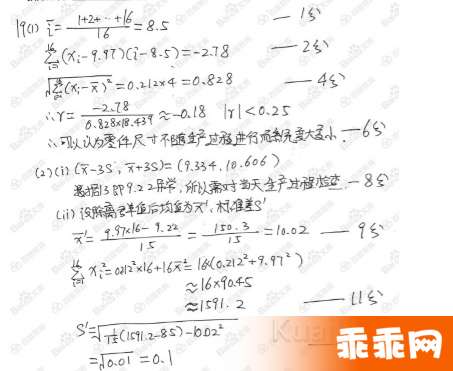 19(1) ī = (1+2+…+16)/16 = 8.5 —1分
∑(i=1→16)(xi-9.97)(i-8.5)=-2.78 —2分
√(∑(i=1→16)(xi-x̄)²)=0.212×4=0.828 —4分
∴r=-2.78/(0.828×18.439)≈-0.18 |r|<0.25
∴可以认为零件尺寸不随生产过程进行而系统变大变小 —6分
(2)(i)(x̄-3S, x̄+3S)=(9.334, 10.606)
第13即9.22异常,所以需对当天生产过程检查 —8分
(ii)设除离群值后均值为x̄',标准差S'
x̄'=(9.97×16-9.22)/15=150.3/15=10.02 —9分
∑(i=1→16)xi²=0.212²×16+16x̄²=16(0.212²+9.97²)
≈16×90.45
≈1591.2 —11分
S'=√(1/15(1591.2-85)-10.02²)
=√0.01=0.1
乖乖网